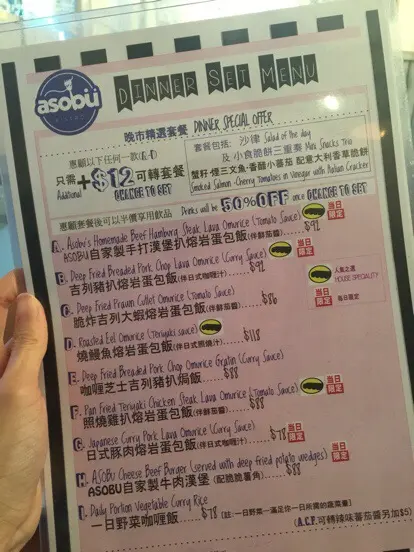 asobü
DINNER SET MENU
晚市精選套餐 DINNER SPECIAL OFFER
惠顧以下任何一款(A-I)
只需 +$12 可轉套餐
Additional CHANCE TO SET
套餐包括: 沙律 Salad of the day
及 小食脆餅三重奏 Mini Snacks Trio
蟹籽·煙三文魚·香醋小蕃茄 配意大利香草脆餅
Smoked Salmon·Cherry Tomatoes in Vinegar with Italian Cracker
惠顧套餐後可以半價享用飲品 Drinks will be 50%OFF once CHANCE TO SET
A. Asobü's Homemade Beef Hamburg Steak Lava Omurice (Tomato Sauce) 當日限定
ASOBÜ自家製手打漢堡扒熔岩蛋包飯(伴鮮茄醬) $92
B. Deep Fried Breaded Pork Chop Lava Omurice (Curry Sauce) 當日限定
吉列豬扒熔岩蛋包飯(伴日式咖喱汁) $92
人氣之選
HOUSE SPECIALITY
當日限定 當日限定
C. Deep Fried Prawn Cutlet Omurice (Tomato Sauce)
脆炸吉列大蝦熔岩蛋包飯(伴鮮茄醬) $86
D. Roasted Eel Omurice (Teriyaki sauce)
燒鰻魚熔岩蛋包飯(伴日式照燒汁) $118
E. Deep Fried Breaded Pork Chop Omurice Gratin (Curry Sauce)
咖喱芝士吉列豬扒焗飯 $88
F. Pan Fried Teriyaki Chicken Steak Lava Omurice (Tomato Sauce) 當日限定
照燒雞扒熔岩蛋包飯(伴鮮茄醬) $88
G. Japanese Curry Pork Lava Omurice (Curry Sauce)
日式豚肉熔岩蛋包飯(伴日式咖喱汁) $78 當日限定
H. ASOBÜ Cheese Beef Burger (served with deep fried potato wedges) 當日限定
ASOBÜ自家製牛肉漢堡(配脆脆薯角) $88
I. Daily Portion Vegetable Curry Rice
一日野菜咖喱飯 $78 [註:一日野菜—滿足你一日所需的蔬菜量]
(A.C.F可轉辣味蕃茄醬另加$5)